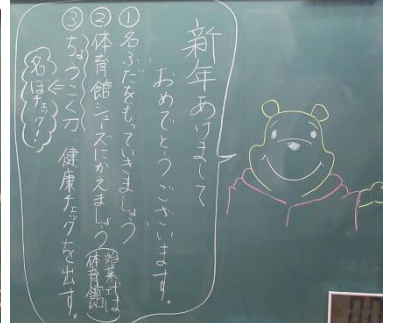 新年あけまして
おめでとうございます。
①名ふだをもっていきましょう
②体育館シューズにかえましょう(始業式は体育館)
③ちょうこく刀 健康チェックを出す。
名ぼチェック!